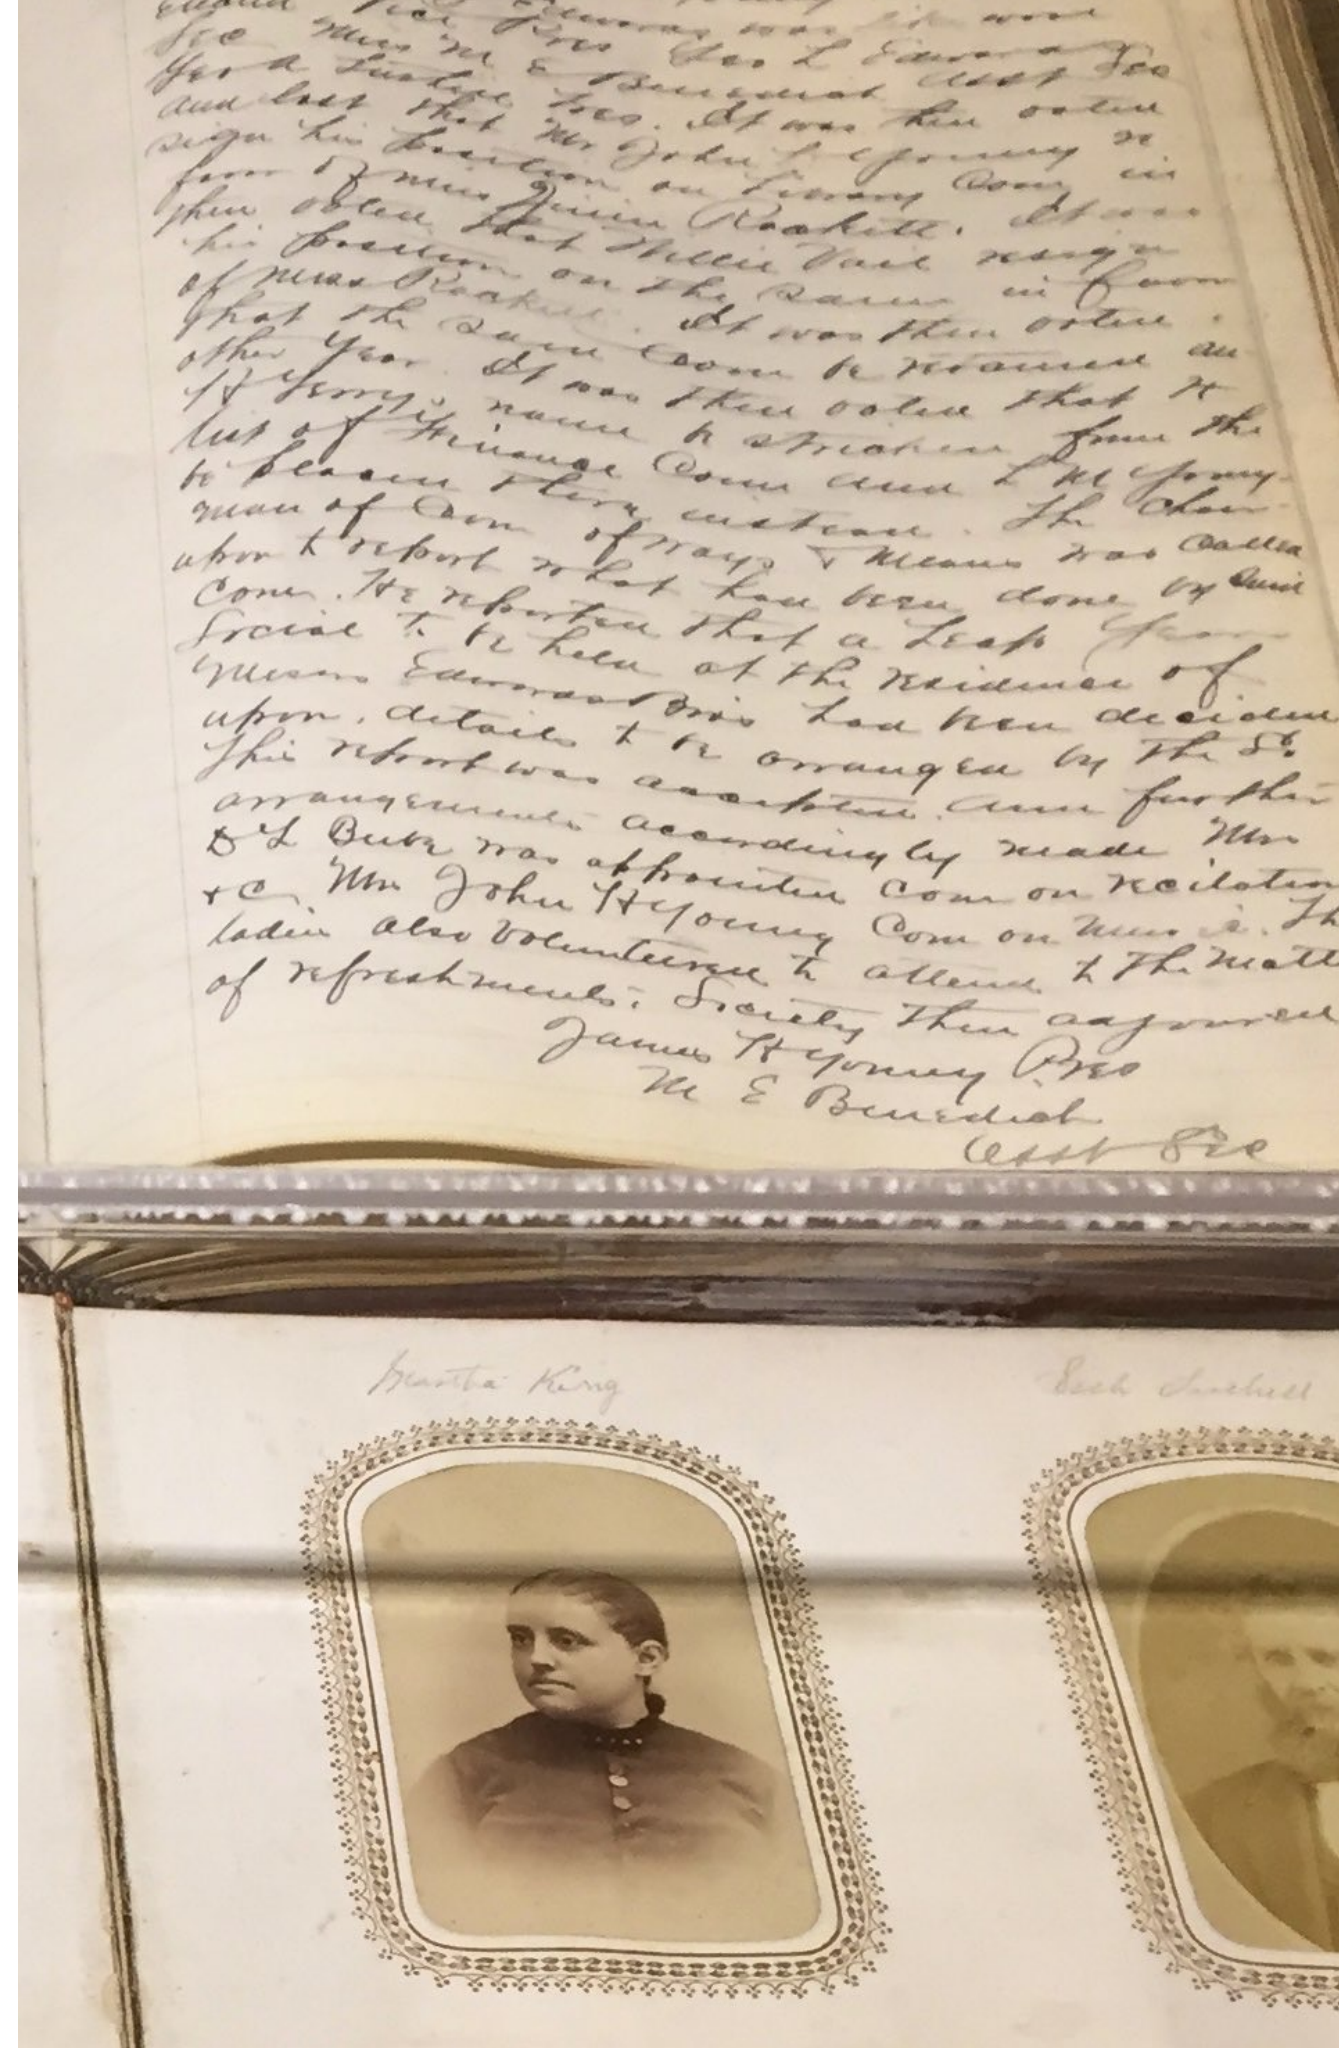 Vice Pres
Sec Miss M E Benedict Asst Sec
Tres. It was then voted
and last that Mr John H Young re
sign his position on Literary Com in
favor of Miss Rackett. It was
then voted that Willie Vail resign
his position on the same in favor
of Miss Rackett. It was then voted
that the same Com be retained an
other year. It was then voted that H
H Terry's name be stricken from the
list of Finance Com and L M Young
be placed there instead. The Chair
man of Com of ways & means was called
upon to report what had been done by said
Com. He reported that a Leap Year
Social to be held at the residence of
Messrs Edwards Bros had been decided
upon, details to be arranged by the So.
This report was accepted and further
arrangements accordingly made Mr
was appointed Com on recitation
& C. Mr John H Young Com on Music. Th
ladies also volunteered to attend to the matt
of refreshments. Society then adjourned
James H Young Pres
M E Benedict
Asst Sec
Martha King